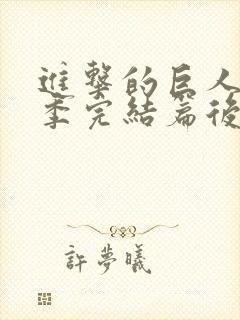 進擊的巨人
季完結篇後
許夢曦